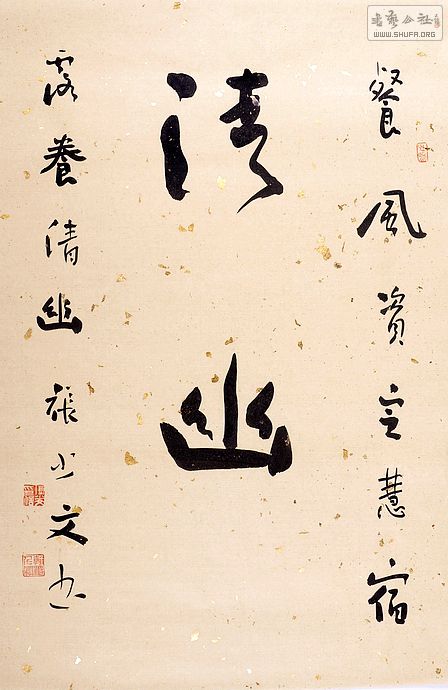 書藝公社
WWW.SHUFA.ORG
餐風資定慧宿
清幽
露養清幽 張少文書